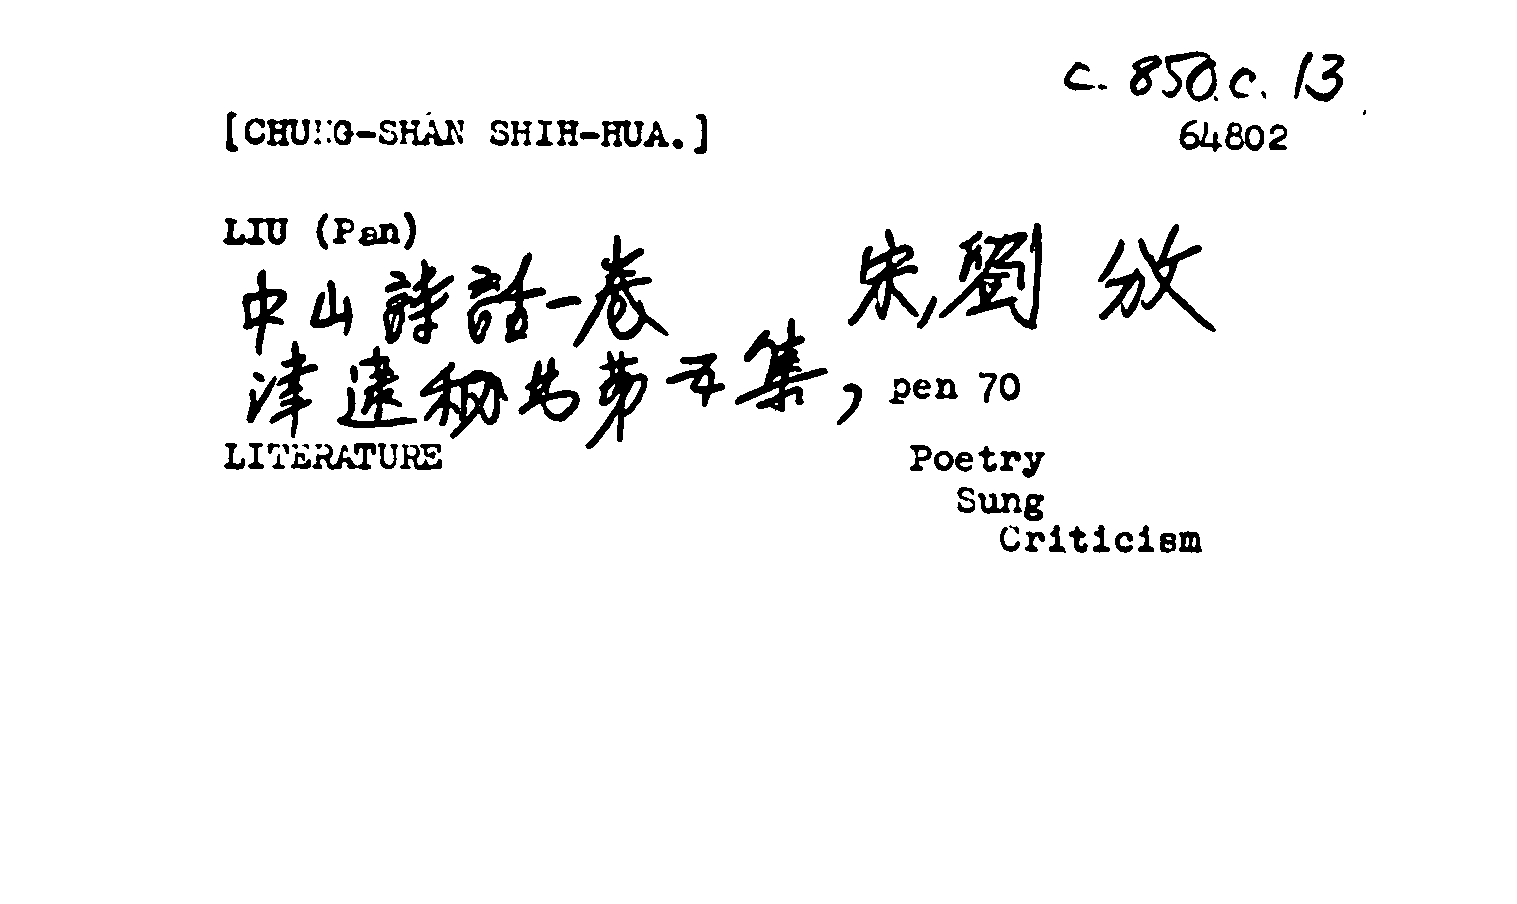 c. 850.c.13
[CHUNG-SHAN SHIH-HUA.] 64802
LIU (Pan)
中山詩話一卷 宋,劉攽
津逮秘书第五集, pen 70
LITERATURE Poetry
Sung
Criticism